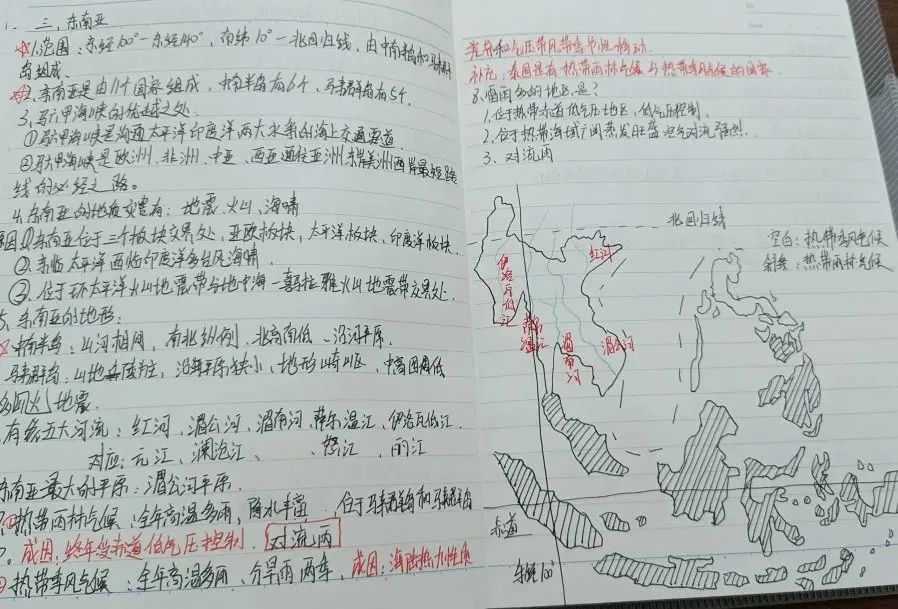 三、东南亚
☆1.范围：东经100°-东经140°，南纬10°-北回归线，由中南半岛和马来群
岛组成.
☆2.东南亚是由11个国家组成，中南半岛有6个，马来群岛有5个.
3.马六甲海峡的优越之处.
①马六甲海峡是沟通太平洋印度洋两大水系的海上交通要道
②马六甲海峡是欧洲、非洲、中亚、西亚通往亚洲东岸美洲西岸最短路
线的必经之路。
4.东南亚的地质灾害有：地震、火山、海啸
原因①东南亚位于三个板块交界处，亚欧板块，太平洋板块、印度洋板块.
②东临太平洋西临印度洋多台风海啸.
③.位于环太平洋火山地震带与地中海一喜马拉雅火山地震带交界处.
5、东南亚的地形：
☆中南半岛：山河相间，南北纵列、北高南低、沿河平原.
马来群岛：山地丘陵为主，沿海平原狭小、地形崎岖、中高四周低
多火山地震.
有名五大河流：红河、湄公河、湄南河、萨尔温江、伊洛瓦底江.
对应：元江、澜沧江、 、怒江、 丽江
东南亚最大的平原：湄公河平原.
①热带雨林气候：全年高温多雨，降水丰富. 位于马来群岛和马来半岛
成因：终年受赤道低气压控制. 对流雨
②热带季风气候：全年高温多雨、分旱雨两季. 成因：海陆热力性质
差异和气压带风带季节性移动.
补充：泰国是有热带雨林气候与热带季风气候的国家.
8.雷雨多的地区是?
1.位于热带赤道低气压地区，低气压控制.
2.位于热带海域广阔蒸发旺盛空气对流强烈.
3.对流雨
北回归线
空白：热带季风气候
斜条：热带雨林气候
红河
伊洛瓦底江
萨尔温江
湄南河
湄公河
赤道
东经100°